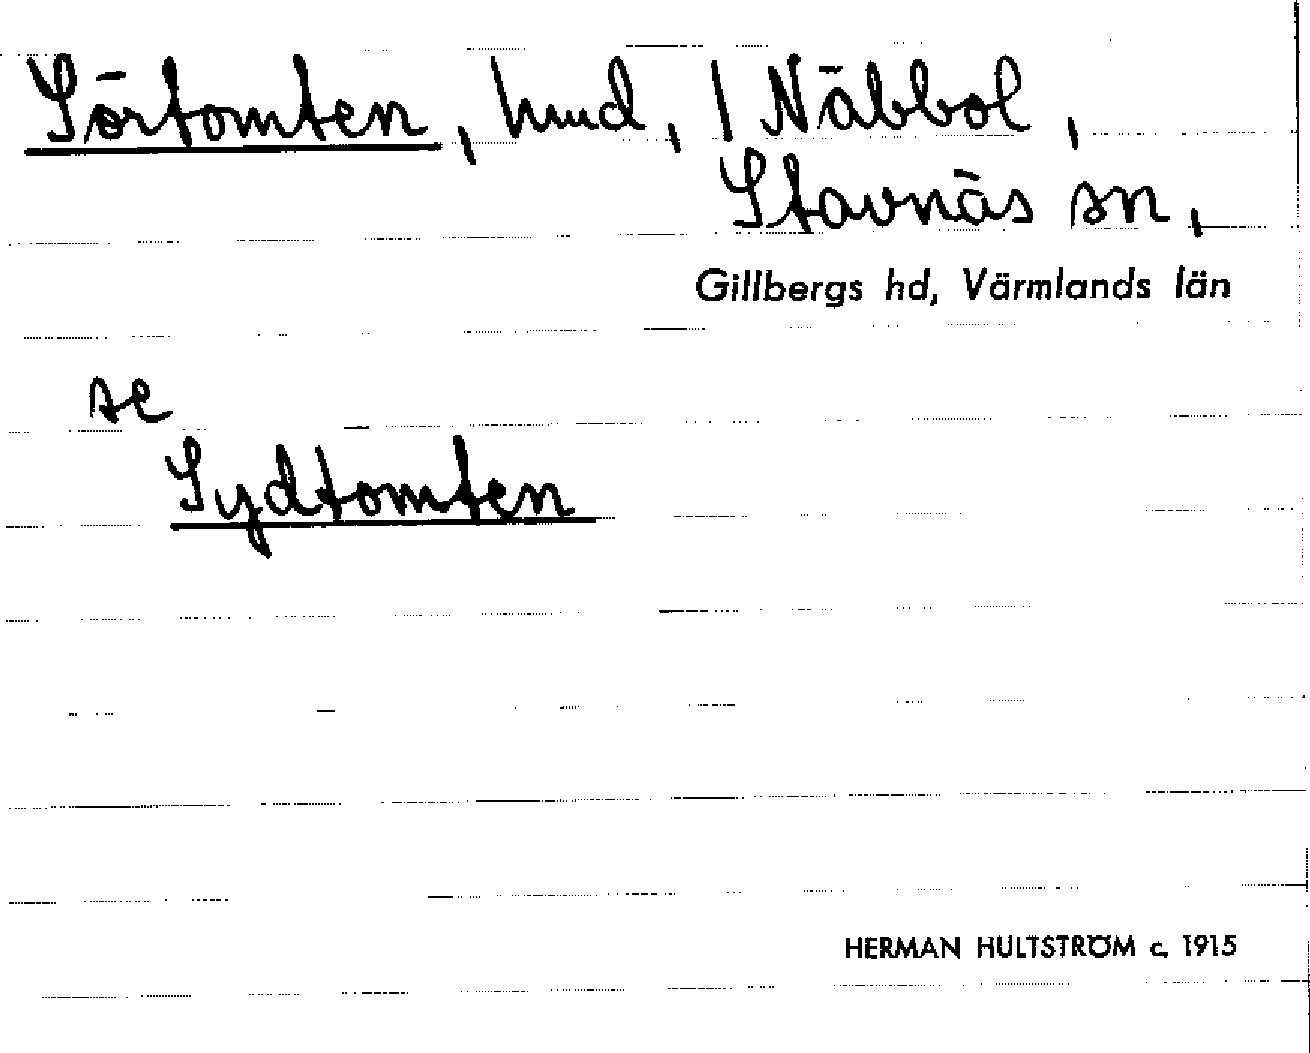 Sörtomten, hmd, 1 Näbbol,
Stavnäs sn,
Gillbergs hd, Värmlands län
se
Sydtomten
HERMAN HULTSTRÖM c. 1915